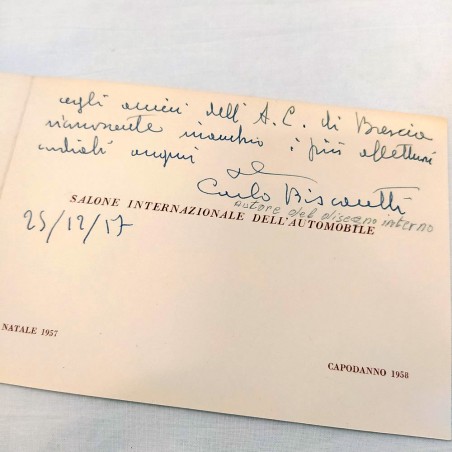 agli amici dell'A.C. di Brescia
riconoscente invio i più affettuosi
cordiali auguri
Carlo Biscaretti
SALONE INTERNAZIONALE DELL'AUTOMOBILE
autore del disegno interno
25/12/57
NATALE 1957
CAPODANNO 1958